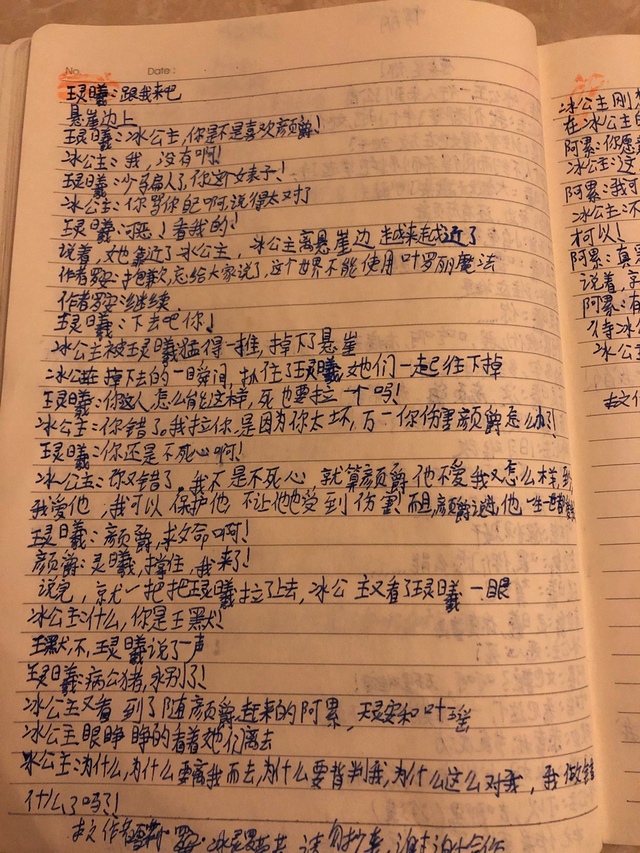 No.
Date:
王灵曦:跟我来吧
悬崖边上
王灵曦:冰公主,你是不是喜欢颜爵!
冰公主:我,没有啊!
王灵曦:少百扁人了,你这个婊子!
冰公主:你骂你自己啊,说得太对了
王灵曦:挺!看我的!
说着,她靠近了冰公主,冰公主离悬崖边越来越近了
作者罗安:抱歉,忘给大家说了,这个世界不能使用叶罗丽魔法
作者罗安:继续
王灵曦:下去吧你!
冰公主被王灵曦猛得一推,掉下了悬崖
冰公主在掉下去的一瞬间,抓住了王灵曦,她们一起往下掉
王灵曦:你这人,怎么能这样,死也要拉一个吗!
冰公主:你错了。我拉你,是因为你太坏,万一你伤害颜爵怎么办!
王灵曦:你还是不死心啊!
冰公主:你又错了。我不是不死心,就算颜爵他不爱我又怎么样,到
我爱他,我可以保护他不让他受到伤害!而且,颜爵说过,他一生一世都
王灵曦:颜爵,求救命啊!
颜爵:灵曦,撑住,我来了!
说完,就一把把王灵曦拉了上去,冰公主又看了王灵曦一眼
冰公主:什么,你是王默!
王默,不,王灵曦说了一声
王灵曦:病公猪,永别了!
冰公主又看到了随颜爵赶来的阿累,灵安和叶瑶
冰公主眼睁睁的看着她们离去
冰公主:为什么,为什么要离我而去,为什么要背判我,为什么这么对我,我做错
什么了吗!
本文作者 请勿抄袭,谢谢合作
冰公主刚
在冰公主
阿累:你愿
冰公主:这
阿累:我可
冰公主:不
可以!
阿累:真
说着,
阿累:有
待冰
冰公主
本文作